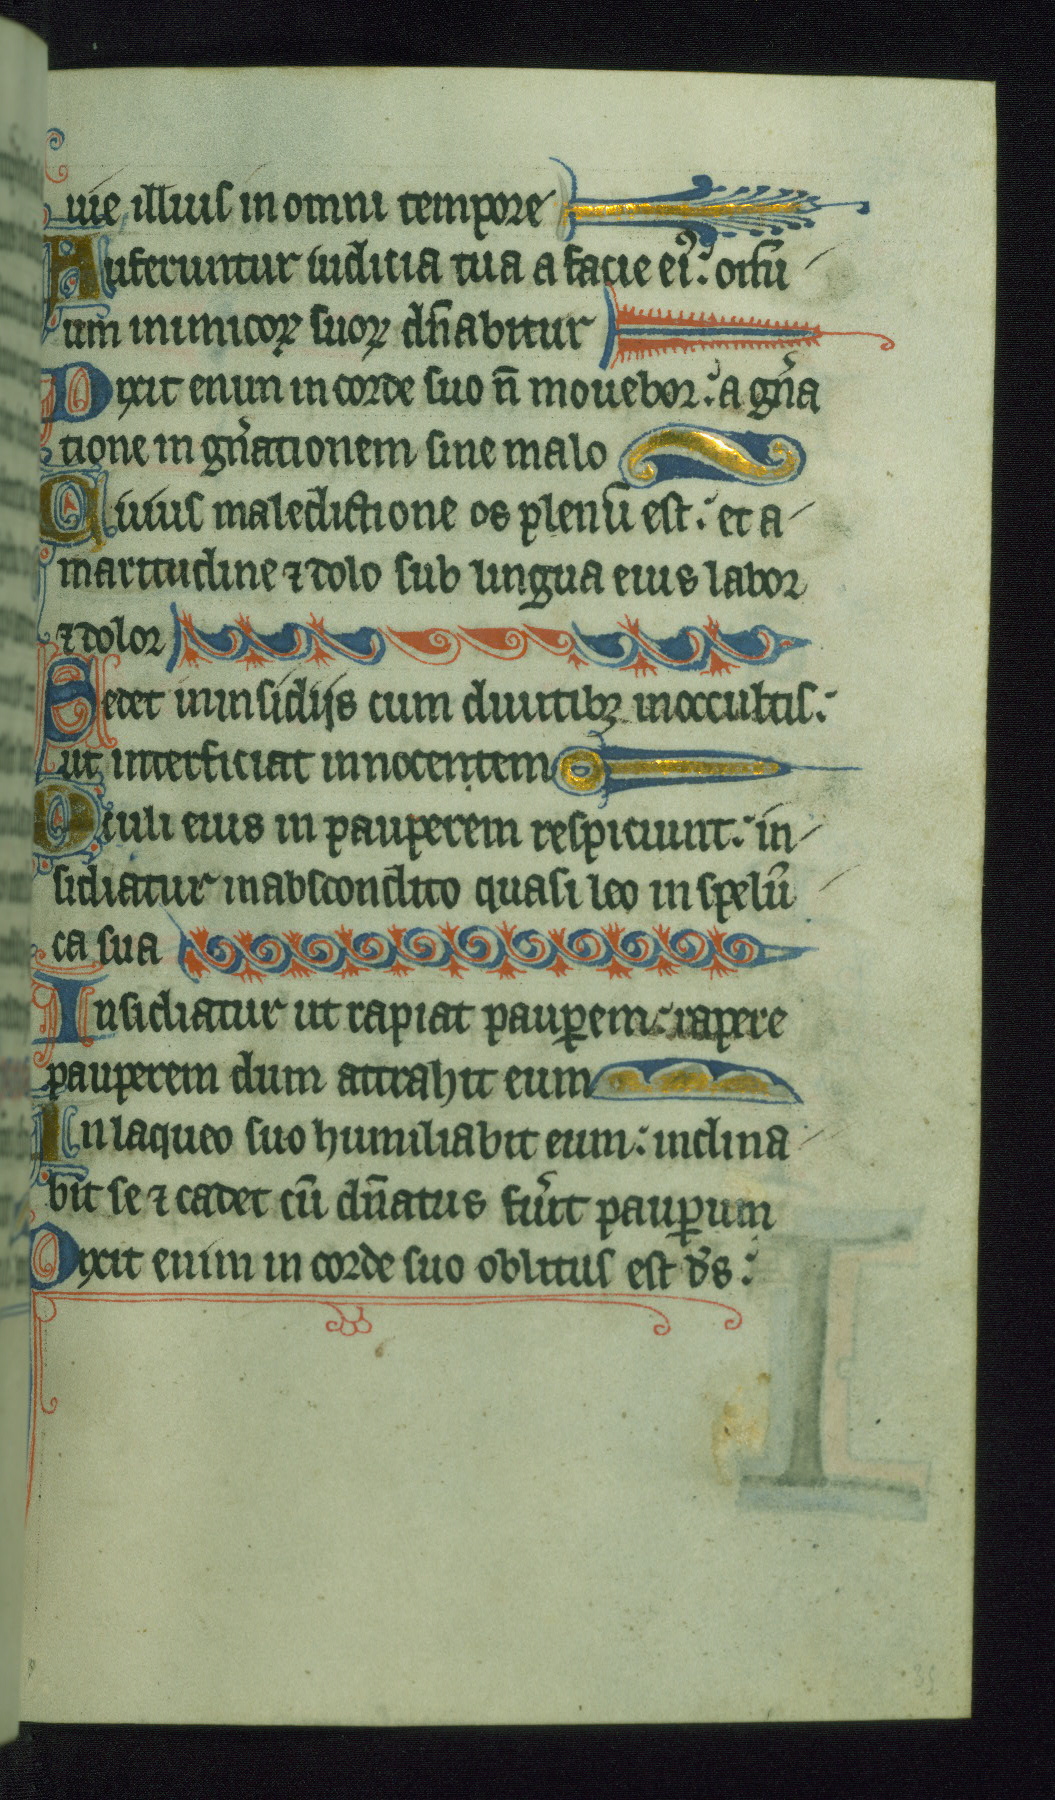 uie illius in omni tempore
Auferuntur iuditia tua a facie ei᷒: om̄i
um inimicoꝝ suoꝝ dn̄abitur
Dixit enim in corde suo n̄ mouebor: a gn̄a
tione in gn̄ationem sine malo
Cuius maledictione os plenū est: et a
maritudine ⁊ dolo sub lingua eius labor
⁊ dolor
Sedet in insidijs cum diuitibꝫ in occultis:
ut interficiat innocentem
Oculi eius in pauperem respiciunt: in
sidiatur in abscondito quasi leo in spelū
ca sua
Insidiatur ut rapiat pauꝑem: rapere
pauperem dum attrahit eum
In laqueo suo humiliabit eum: inclina
bit se ⁊ cadet cū dn̄atus fu̾it pauꝑum
Dixit enim in corde suo oblitus est ds̄: